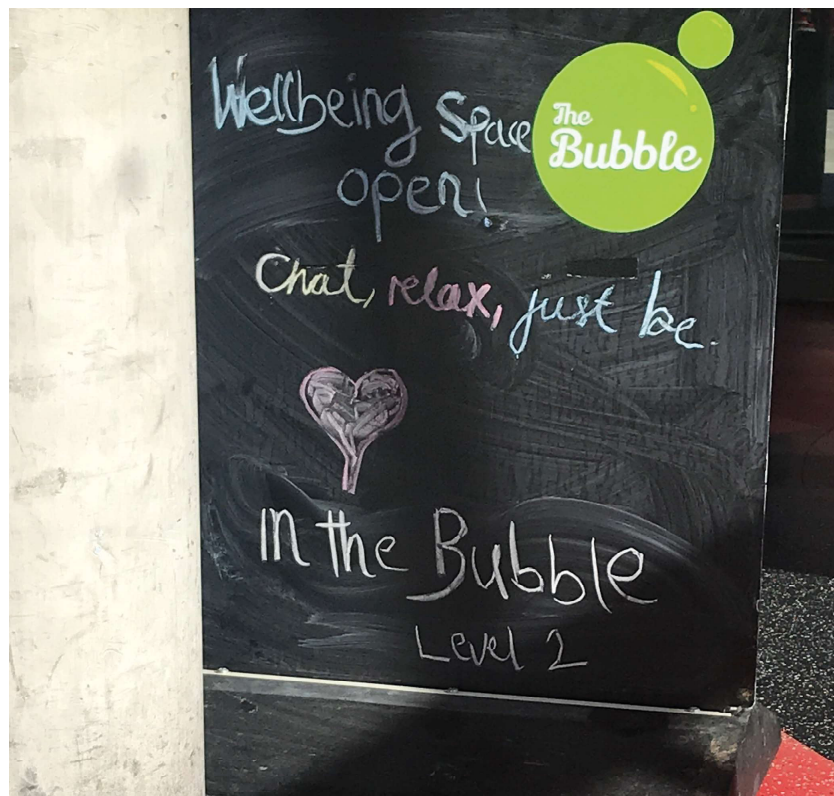 Wellbeing Space
open!
The
Bubble
Chat, relax, just be.
In the Bubble
Level 2